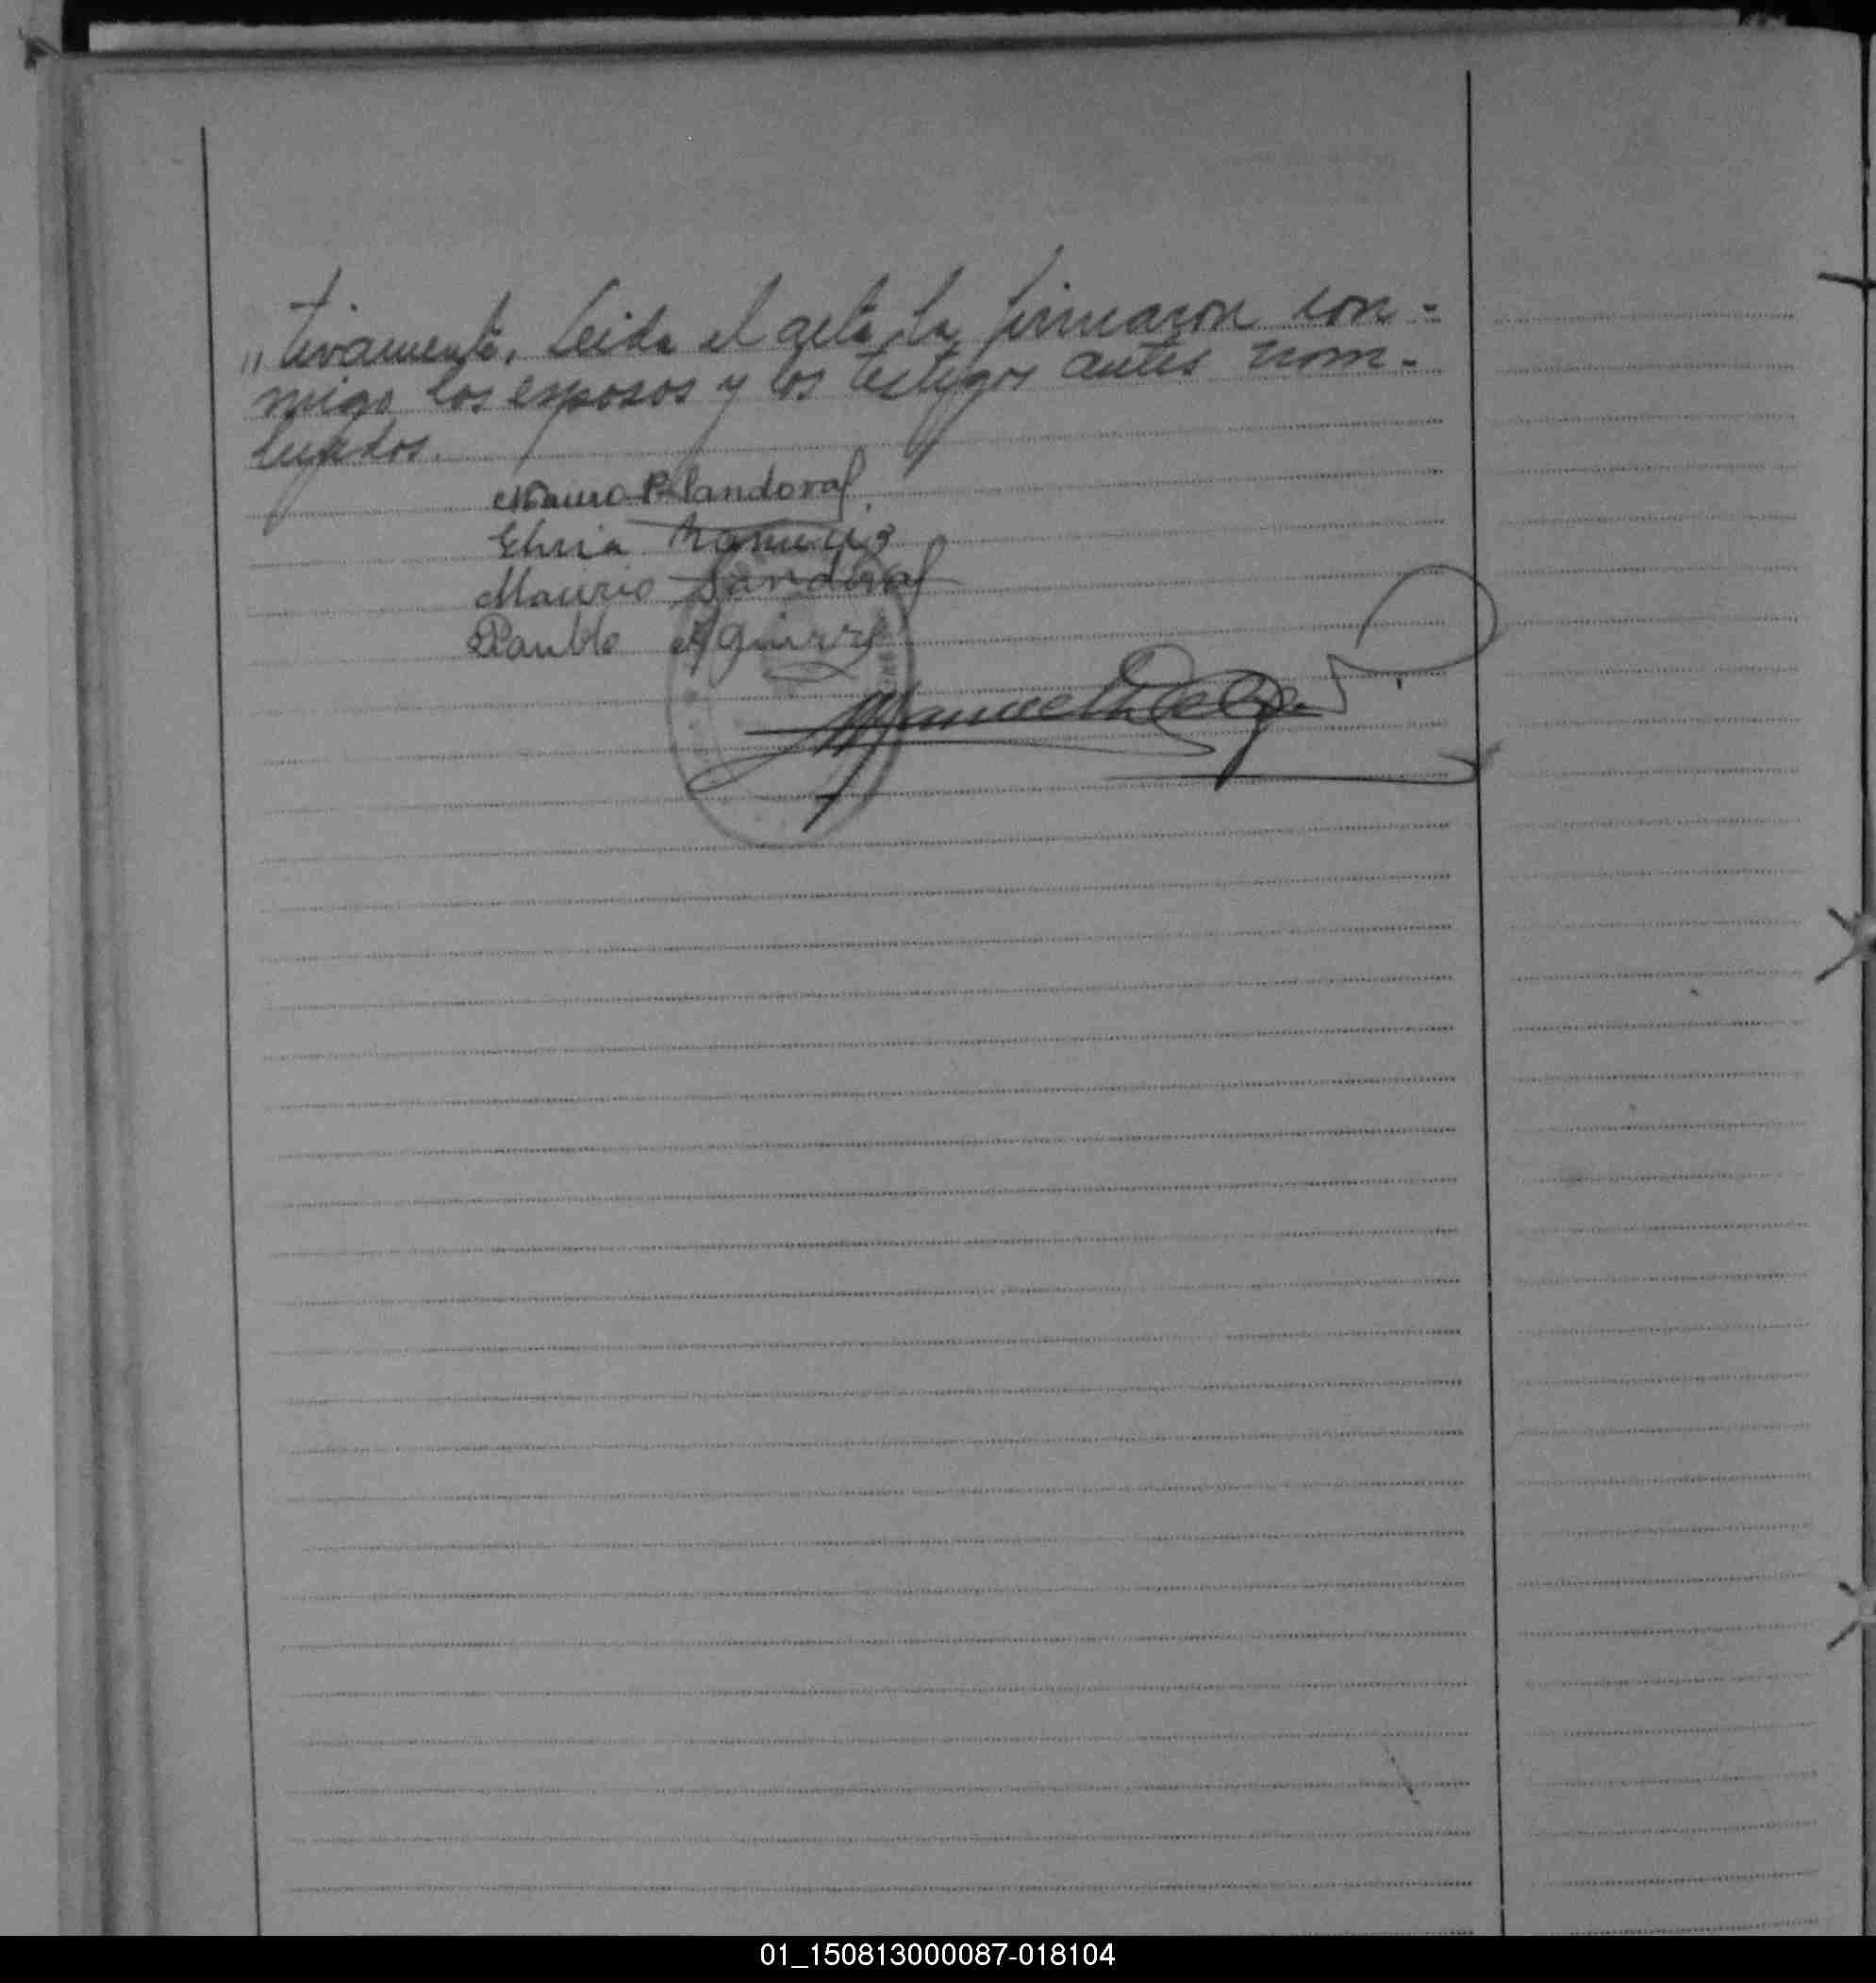 „ tivamente. Leida el acta la firmaron con-
migo los esposos y los testigos antes nom-
brados.
Mauro P. Sandoval
Elvia
Maurio Sandoval
Paublo Aguirre
Manuel
01_150813000087-018104